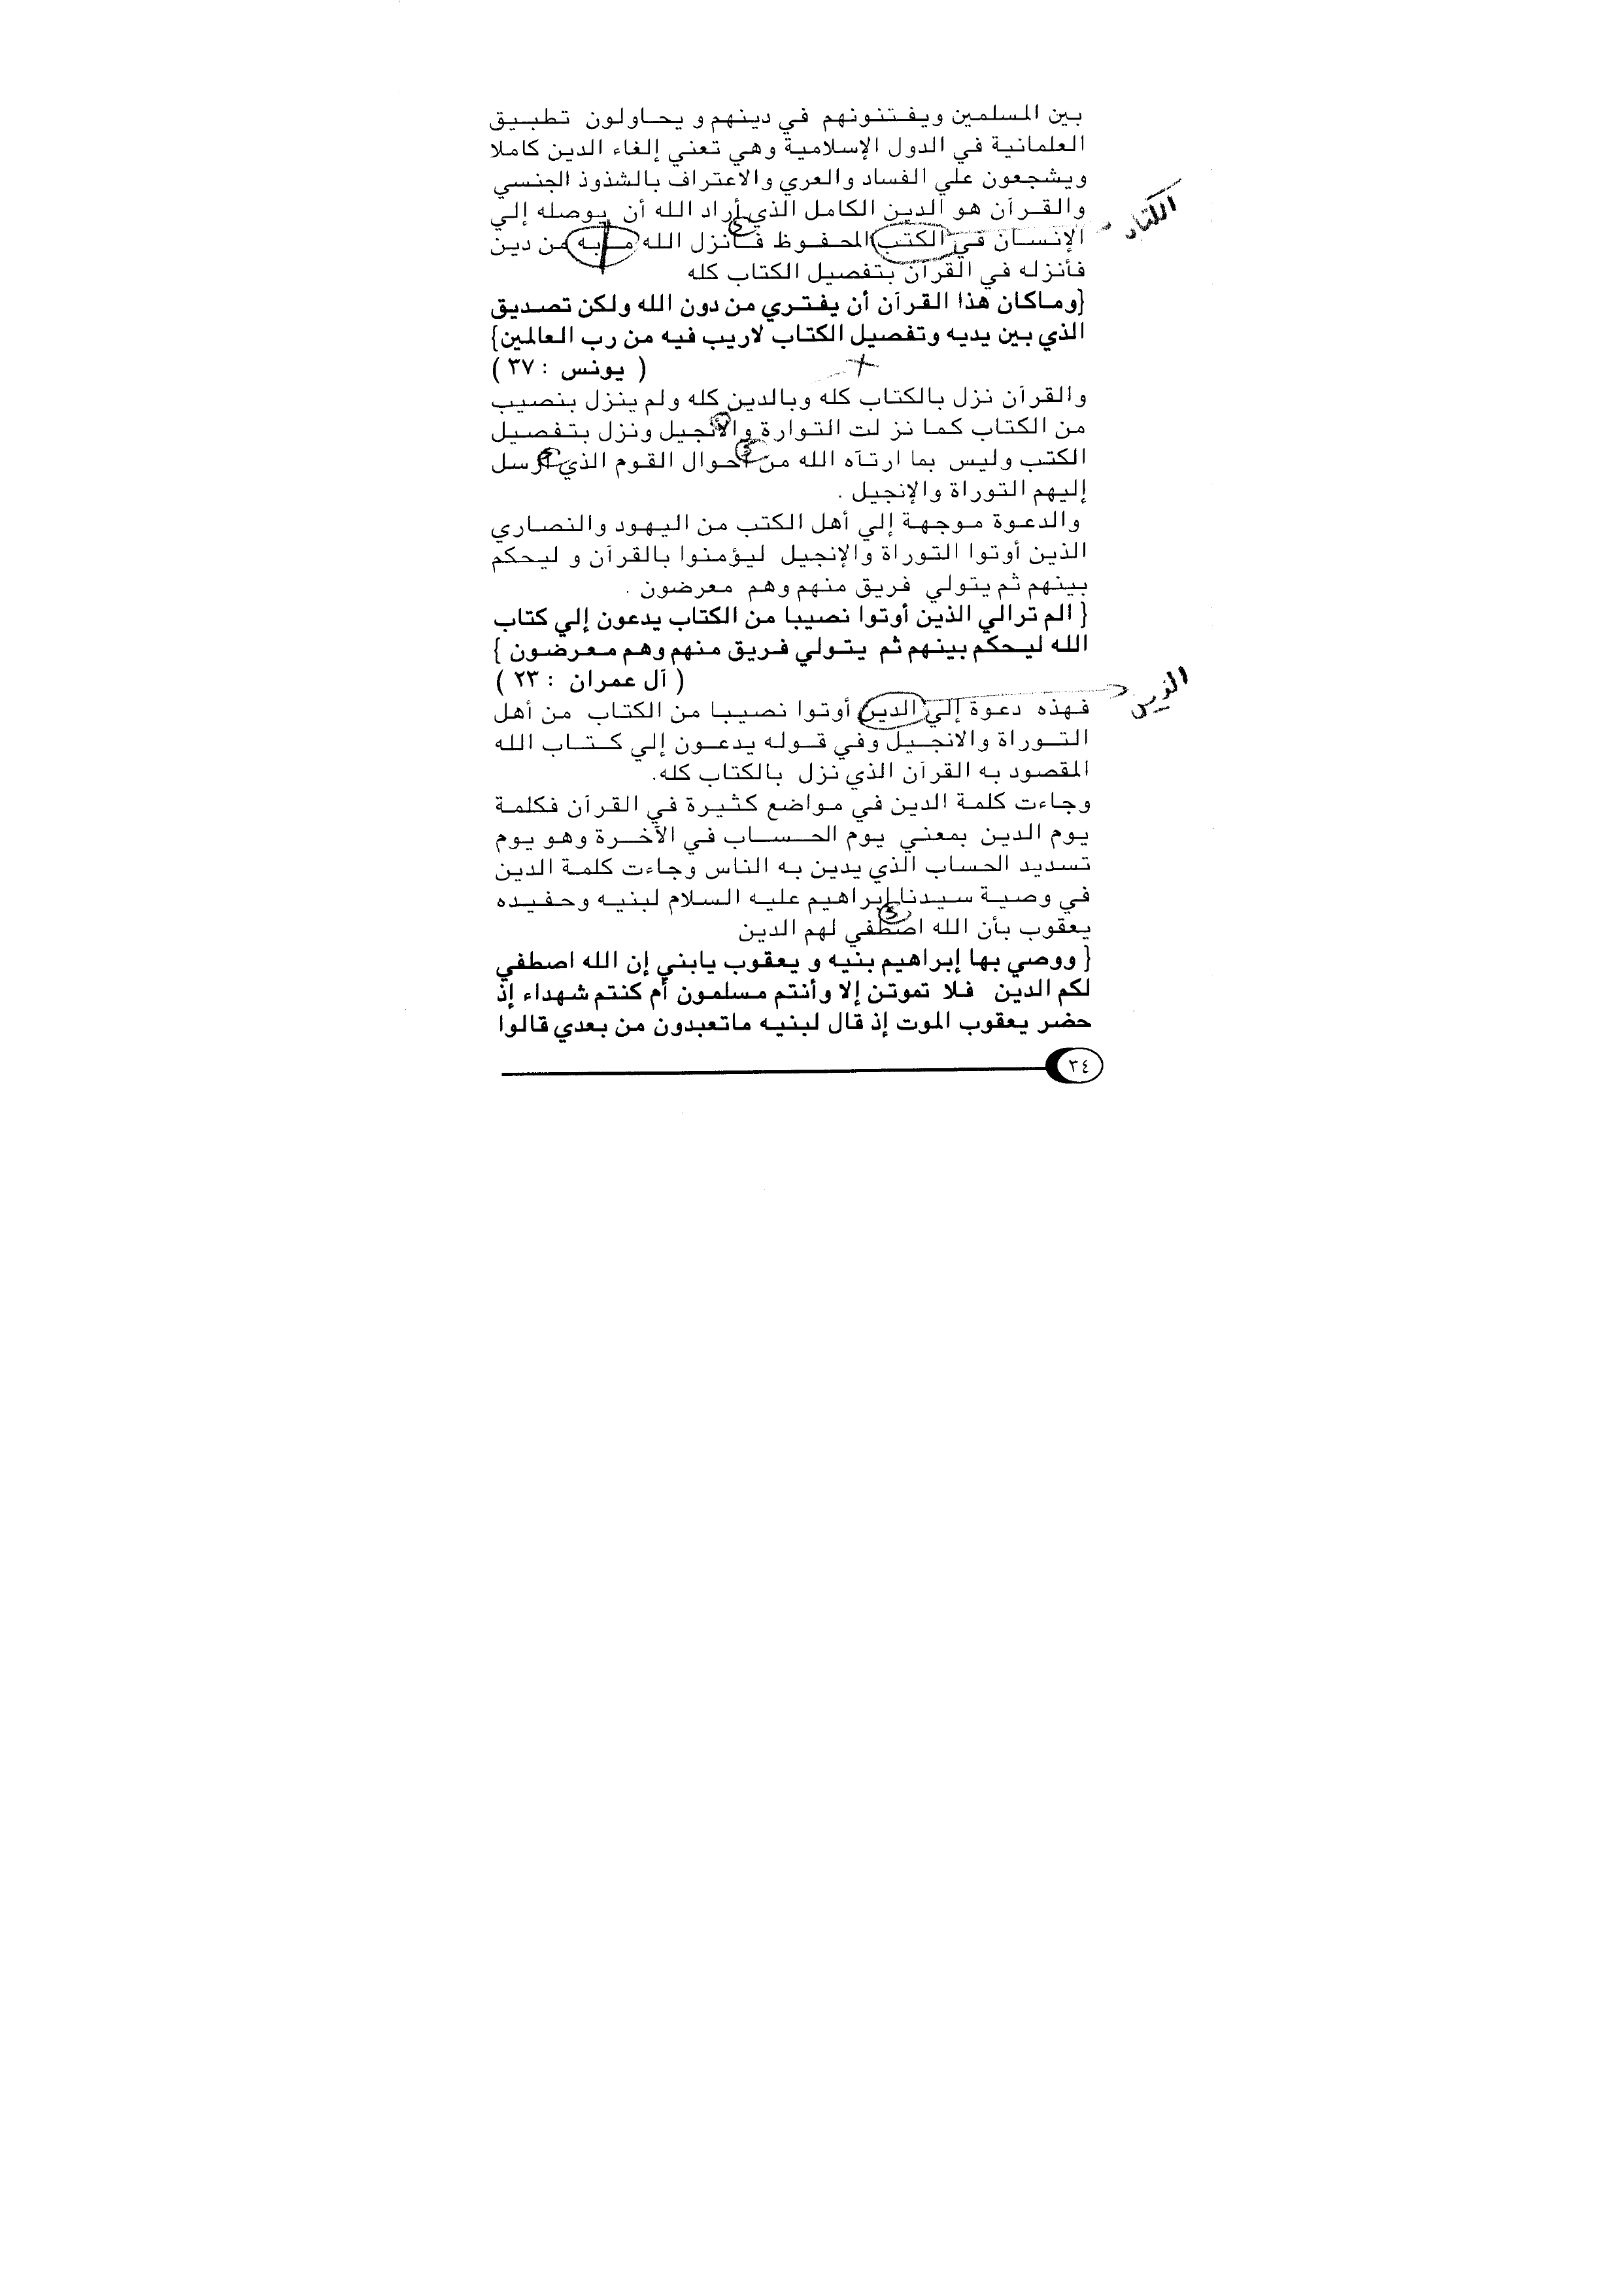 بين المسلمين ويفتنونهم في دينهم و يحاولون تطبيق
العلمانية في الدول الإسلامية وهي تعني إلغاء الدين كاملا
ويشجعون علي الفساد والعري والاعتراف بالشذوذ الجنسي
والقرآن هو الدين الكامل الذي أراد الله أن يوصله إلي
الكتاب
الإنسان في الكتب المحفوظ فأنزل الله مابه من دين
فأنزله في القرآن بتفصيل الكتاب كله
{وماكان هذا القرآن أن يفتري من دون الله ولكن تصديق
الذي بين يديه وتفصيل الكتاب لاريب فيه من رب العالمين}
( يونس : ٣٧ )
والقرآن نزل بالكتاب كله وبالدين كله ولم ينزل بنصيب
من الكتاب كما نز لت التوارة والأنجيل ونزل بتفصيل
الكتب وليس بما ارتآه الله من أحوال القوم الذي أرسل
إليهم التوراة والإنجيل .
والدعوة موجهة إلي أهل الكتب من اليهود والنصاري
الذين أوتوا التوراة والإنجيل ليؤمنوا بالقرآن و ليحكم
بينهم ثم يتولي فريق منهم وهم معرضون .
{ الم ترالي الذين أوتوا نصيبا من الكتاب يدعون إلي كتاب
الله ليحكم بينهم ثم يتولي فريق منهم وهم معرضون }
( آل عمران : ٢٣ )
الذين
فهذه دعوة إلي الدين أوتوا نصيبا من الكتاب من أهل
التوراة والانجيل وفي قوله يدعون إلي كتاب الله
المقصود به القرآن الذي نزل بالكتاب كله.
وجاءت كلمة الدين في مواضع كثيرة في القرآن فكلمة
يوم الدين بمعني يوم الحساب في الآخرة وهو يوم
تسديد الحساب الذي يدين به الناس وجاءت كلمة الدين
في وصية سيدنا إبراهيم عليه السلام لبنيه وحفيده
يعقوب بأن الله اصطفي لهم الدين
{ ووصي بها إبراهيم بنيه و يعقوب يابني إن الله اصطفي
لكم الدين فلا تموتن إلا وأنتم مسلمون أم كنتم شهداء إذ
حضر يعقوب الموت إذ قال لبنيه ماتعبدون من بعدي قالوا
٣٤